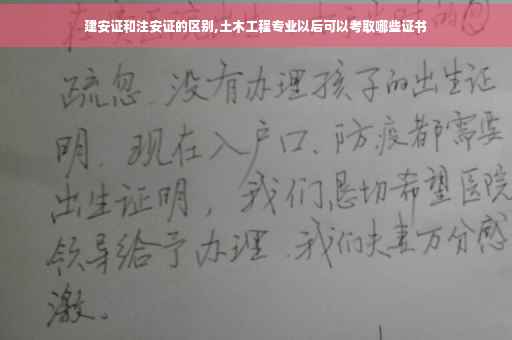 建安证和注安证的区别,土木工程专业以后可以考取哪些证书
疏忽.没有办理孩子的出生证
明.现在入户口、防疫都需要
出生证明，我们恳切希望医院
领导给予办理.我们夫妻万分感
激。